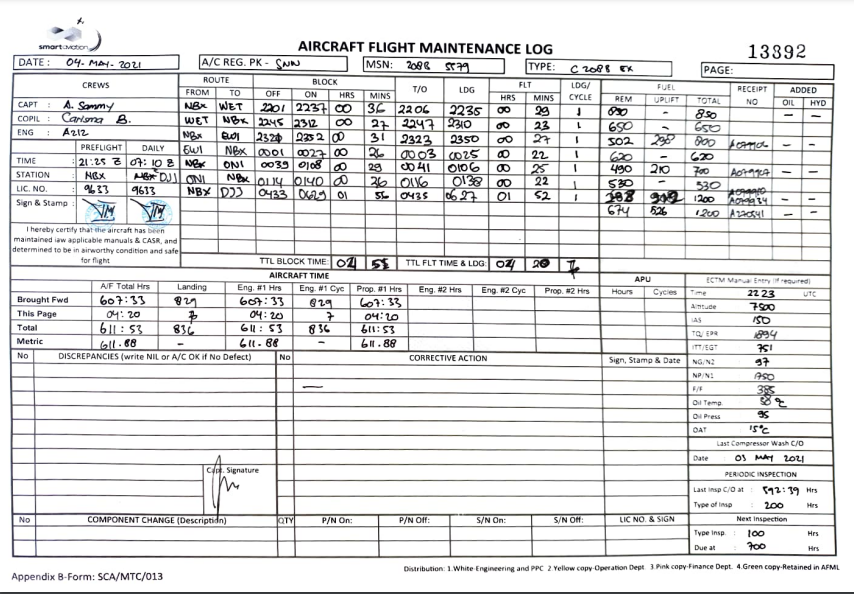 smartaviation
AIRCRAFT FLIGHT MAINTENANCE LOG
13892
DATE : 04- MAY- 2021 A/C REG. PK - SNN MSN: 208B 5579 TYPE: C 208B EX PAGE:
CREWS ROUTE BLOCK T/O LDG FLT LDG/ CYCLE FUEL RECEIPT NO ADDED
FROM TO OFF ON HRS MINS HRS MINS REM UPLIFT TOTAL OIL HYD
CAPT : A. Sammy NBX WET 2201 2237 00 36 2206 2235 00 29 1 850 - 850 - -
COPIL : Carisma B. WET NBX 2245 2312 00 27 2247 2310 00 23 1 650 - 650
ENG : AZIZ NBX EWI 2320 2352 00 31 2323 2350 00 27 1 502 298 800 - -
PREFLIGHT DAILY EWI NBX 0001 0027 00 26 0003 0025 00 22 1 620 - 620
TIME : 21:25 Z 07:10 Z NBX ONI 0039 0108 00 29 0041 0106 00 25 1 490 210 700 - -
STATION : NBX DJJ ONI NBX 0114 0140 00 26 0116 0138 00 22 1 530 - 530
LIC. NO. : 9633 9633 NBX DJJ 0433 0629 01 56 0435 0627 01 52 1 1200 - -
Sign & Stamp : 674 526 1200 - -
I hereby certify that the aircraft has been
maintained iaw applicable manuals & CASR, and
determined to be in airworthy condition and safe
for flight
TTL BLOCK TIME: 04 TTL FLT TIME & LDG: 04 20 7
AIRCRAFT TIME APU ECTM Manual Entry (If required)
A/F Total Hrs Landing Eng. #1 Hrs Eng. #1 Cyc Prop. #1 Hrs Eng. #2 Hrs Eng. #2 Cyc Prop. #2 Hrs Hours Cycles Time : 2223 UTC
Brought Fwd 607:33 829 607:33 829 607:33 Altitude : 7500
This Page 04:20 7 04:20 7 04:20 IAS : 150
Total 611:53 836 611:53 836 611:53 TQ/ EPR : 1894
Metric 611.88 - 611.88 - 611.88 ITT/EGT : 751
No DISCREPANCIES (write NIL or A/C OK if No Defect) No CORRECTIVE ACTION Sign, Stamp & Date NG/N2 : 97
NP/N1 : 1750
F/F : 385
Oil Temp. : 58 °C
Oil Press : 95
OAT : 15°C
Last Compressor Wash C/O
Date : 03 MAY 2021
PERIODIC INSPECTION
Capt. Signature
Last Insp C/O at : 592:39 Hrs
Type of Insp : 200 Hrs
No COMPONENT CHANGE (Description) QTY P/N On: P/N Off: S/N On: S/N Off: LIC NO. & SIGN Next Inspection
Type Insp. : 100 Hrs
Due at : 700 Hrs
Distribution: 1.White-Engineering and PPC 2.Yellow copy-Operation Dept 3.Pink copy-Finance Dept. 4.Green copy-Retained in AFML
Appendix B-Form: SCA/MTC/013